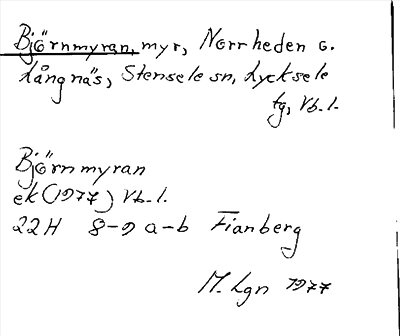 Björnmyran, myr, Norrheden o.
Långnäs, Stensele sn, Lycksele
tg, Vb.l.
Björnmyran
ek (1977) Vb.l.
22H 8-9 a-b Fianberg
M. Lgn 1977